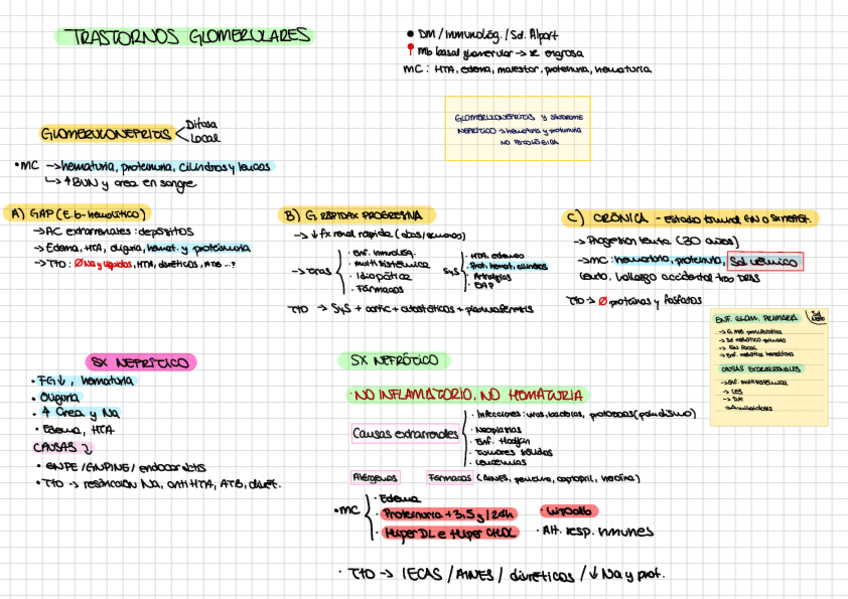 TRASTORNOS GLOMERULARES
• DM / inmunológ. / Sd. Alport
Mb basal glomerular → se engrosa
MC: HTA, edema, malestar, proteinuria, hematuria
GLOMERULONEFRITIS y síndrome
NEFRÍTICO → hematuria y proteinuria
NO FISIOLÓGICA
GLOMERULONEFRITIS
Difusa
Local
• MC → hematuria, proteinuria, cilindros y leucos
↳ ↑BUN y crea en sangre
A) GAP (E. b-hemolítico)
→ AC extrarrenales: depósitos
→ Edema, HTA, oliguria, hemat. y proteinuria
→ TTO: Ø Na y líquidos, HTA, diuréticos, ATB ...?
B) G. RÁPIDAX PROGRESIVA
→ ↓ fx renal rápida (días/semanas)
→ Grales
· Enf. inmunológ.
· multisistémica
· Idiopática
· Fármacos
SyS
· HTA, edemas
· Prot, hemat, cilindros
· Artralgias
· EAP
TTO → SyS + cortic + citostáticos + plasmaféresis
C) CRÓNICA - Estadio terminal GN o Sx nefrót.
→ Progresión lenta (30 años)
→ MC: hematuria, proteinuria, Sd urémico
Lento, hallazgo accidental tras
TTO → Ø proteínas y fosfatos
ENF. GLOM. PRIMARIA
Sd
→ GN focal
CAUSAS EXTRARRENALES
→ Enf. multisistémica
→ LES
→ DM
→ Amiloidosis
SX NEFRÍTICO
• FG↓, hematuria
• Oliguria
• ↑ Crea y Na
• Edema, HTA
CAUSAS ↴
• GNPE / GNPING / endocarditis
• TTO → restricción Na, anti HTA, ATB, diurét.
SX NEFRÓTICO
· NO INFLAMATORIO, NO HEMATURIA
Causas extrarrenales
· Infecciones: virus, bacterias, protozoos (paludismo)
· Neoplasias
· Enf. Hodgkin
· Tumores sólidos
· Leucemias
Alérgenos
Fármacos (AINES, penicilina, captopril, heroína)
• MC
· Edema
· Proteinuria +3,5 g / 24h
· HiperDL e Hiper CHOL
· Hipoalb
· Alt. resp. inmunes
· TTO → IECAS / AINES / diuréticos / ↓ Na y prot.